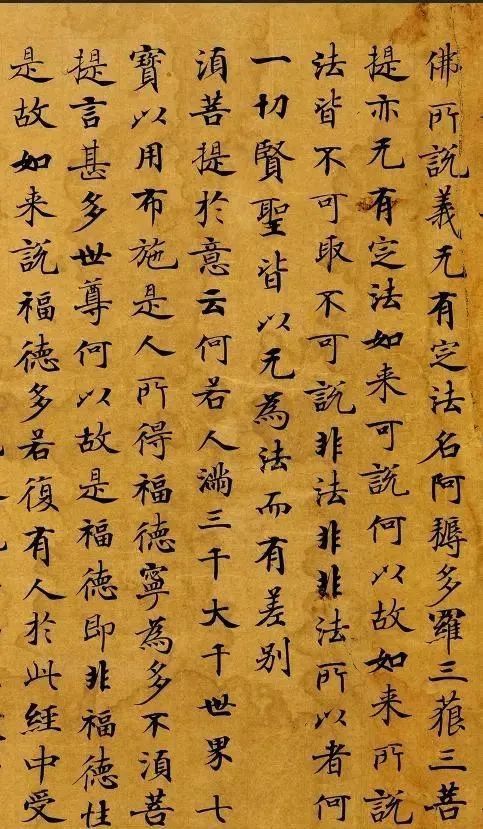 佛所說義无有定法名阿耨多羅三藐三菩
提亦无有定法如来可說何以故如来所說
法皆不可取不可說非法非非法所以者何
一切賢聖皆以无為法而有差别
須菩提於意云何若人滿三千大千世界七
寶以用布施是人所得福德寧為多不須菩
提言甚多世尊何以故是福德即非福德性
是故如来說福德多若復有人於此經中受